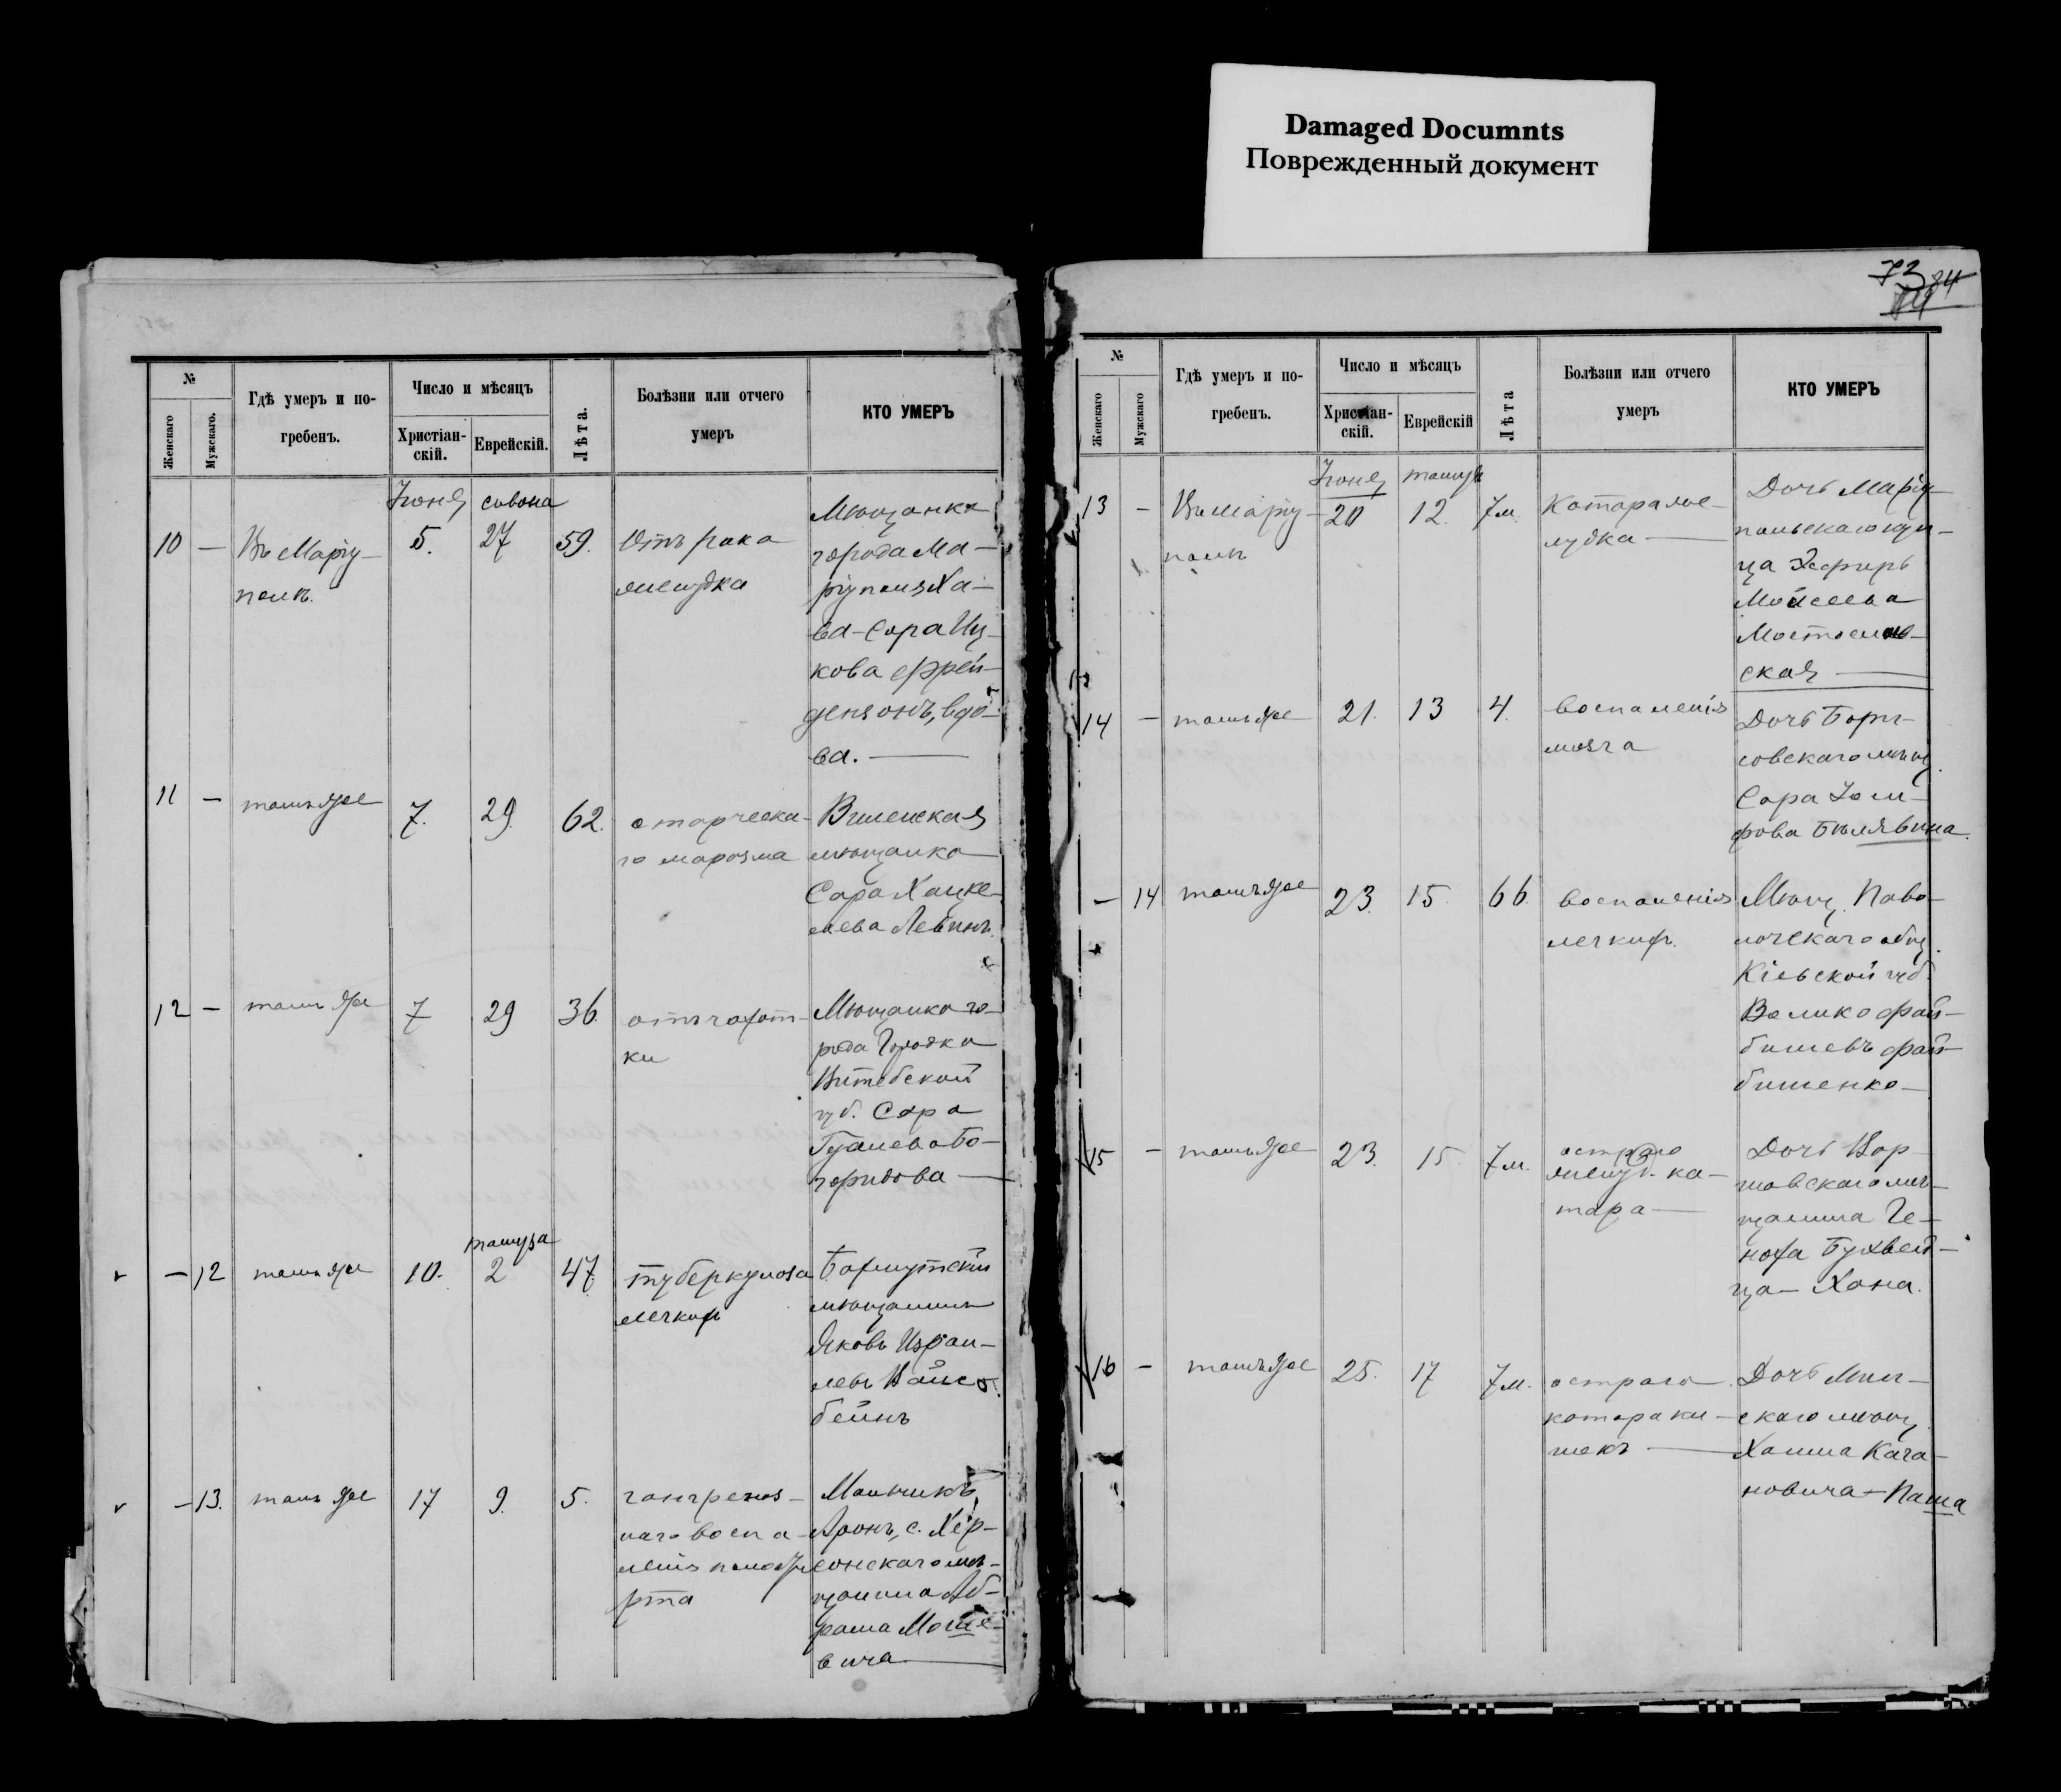 Damaged Documnts
Поврежденный документ
№
Женскаго
Мужскаго.
Гдѣ умеръ и по-
гребенъ.
Число и мѣсяцъ
Христіан-
скій.
Еврейскій.
Лѣта.
Болѣзни или отчего
умеръ
КТО УМЕРЪ
Іюня сивона
10 — Въ Маріу-
полѣ.
5. 27 59.
Отъ рака
желудка
Мѣщанка
города Ма-
ріуполя Ха-
ва-Сора Иц-
кова Фрей-
дензонъ, вдо-
ва.
11 — тамъ же 7. 29. 62.
старческа-
го маразма
Виленская
мѣщанка
Сара Хацке-
лева Левинъ
12 — тамъ же 7 29 36.
отъ чахот-
ки
Мѣщанка го-
рода Городка
Витебской
губ. Сара
Бо-
горидова
тамуза
— 12 тамъ же 10. 2 47.
туберкулоза
легкихъ
Бахмутскій
мѣщанинъ
Яковъ Израи-
левъ
бейнъ
— 13. тамъ же 17 9. 5.
гангреноз-
наго воспа-
ленія полости
рта
Мальчикъ
Аронъ, с. Хер-
сонскаго мѣ-
щанина Аб-
рама Моше-
вича
73 84
№
Женскаго
Мужскаго
Гдѣ умеръ и по-
гребенъ.
Число и мѣсяцъ
Христіан-
скій.
Еврейскій
Лѣта
Болѣзни или отчего
умеръ
КТО УМЕРЪ
Іюня тамузъ
13 — Въ Маріу-
полѣ
20 12. 7 м.
Катара же-
лудка
Дочь Маріу-
польскаго куп-
ца Эсфирь
Мойсеева
Мостослав-
ская
14 — тамъ же 21. 13 4.
воспаленія
мозга
Дочь Бори-
совскаго мѣщ.
Сара
Бѣлявина.
— 14 тамъ же 23. 15. 66.
воспаленія
легкихъ.
Мѣщ. Паво-
лочскаго общ.
Кіевской губ.
Волико Фай-
бишевъ Фай-
бишенко
15 — тамъ же 23. 15. 7 м.
остраго
желуд. ка-
тара
Дочь Вар-
шавскаго мѣ-
щанина Ге-
ноха Бухвей-
ца — Хана.
16 — тамъ же 25. 17 7 м.
остраго
катара ки-
шекъ
Дочь Мин-
скаго мѣщ.
Хаима Кага-
новича — Паша